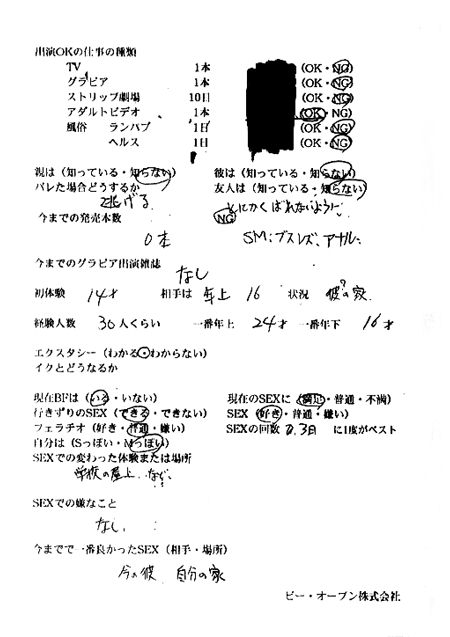 出演OKの仕事の種類
TV 1本 (OK・NG)
グラビア 1本 (OK・NG)
ストリップ劇場 10日 (OK・NG)
アダルトビデオ 1本 (OK・NG)
風俗 ランパブ 1日 (OK・NG)
ヘルス 1日 (OK・NG)
親は (知っている・知らない) 彼は (知っている・知らない)
バレた場合どうするか 友人は (知っている・知らない)
逃げる とにかくばれないように
今までの発売本数 NG
0本 SM:ブス アナル
今までのグラビア出演雑誌
なし
初体験 14才 相手は 年上 16 状況 彼の家
経験人数 30人くらい 一番年上 24才 一番年下 16才
エクスタシー (わかる・わからない)
イクとどうなるか
現在BFは (いる・いない) 現在のSEXに (満足・普通・不満)
行きずりのSEX (できる・できない) SEX (好き・普通・嫌い)
フェラチオ (好き・普通・嫌い) SEXの回数 2.3日 に1度がベスト
自分は (Sっぽい・Mっぽい)
SEXでの変わった体験または場所
学校の屋上 など
SEXでの嫌なこと
なし
今までで一番良かったSEX (相手・場所)
今の彼 自分の家
ビー・オープン株式会社